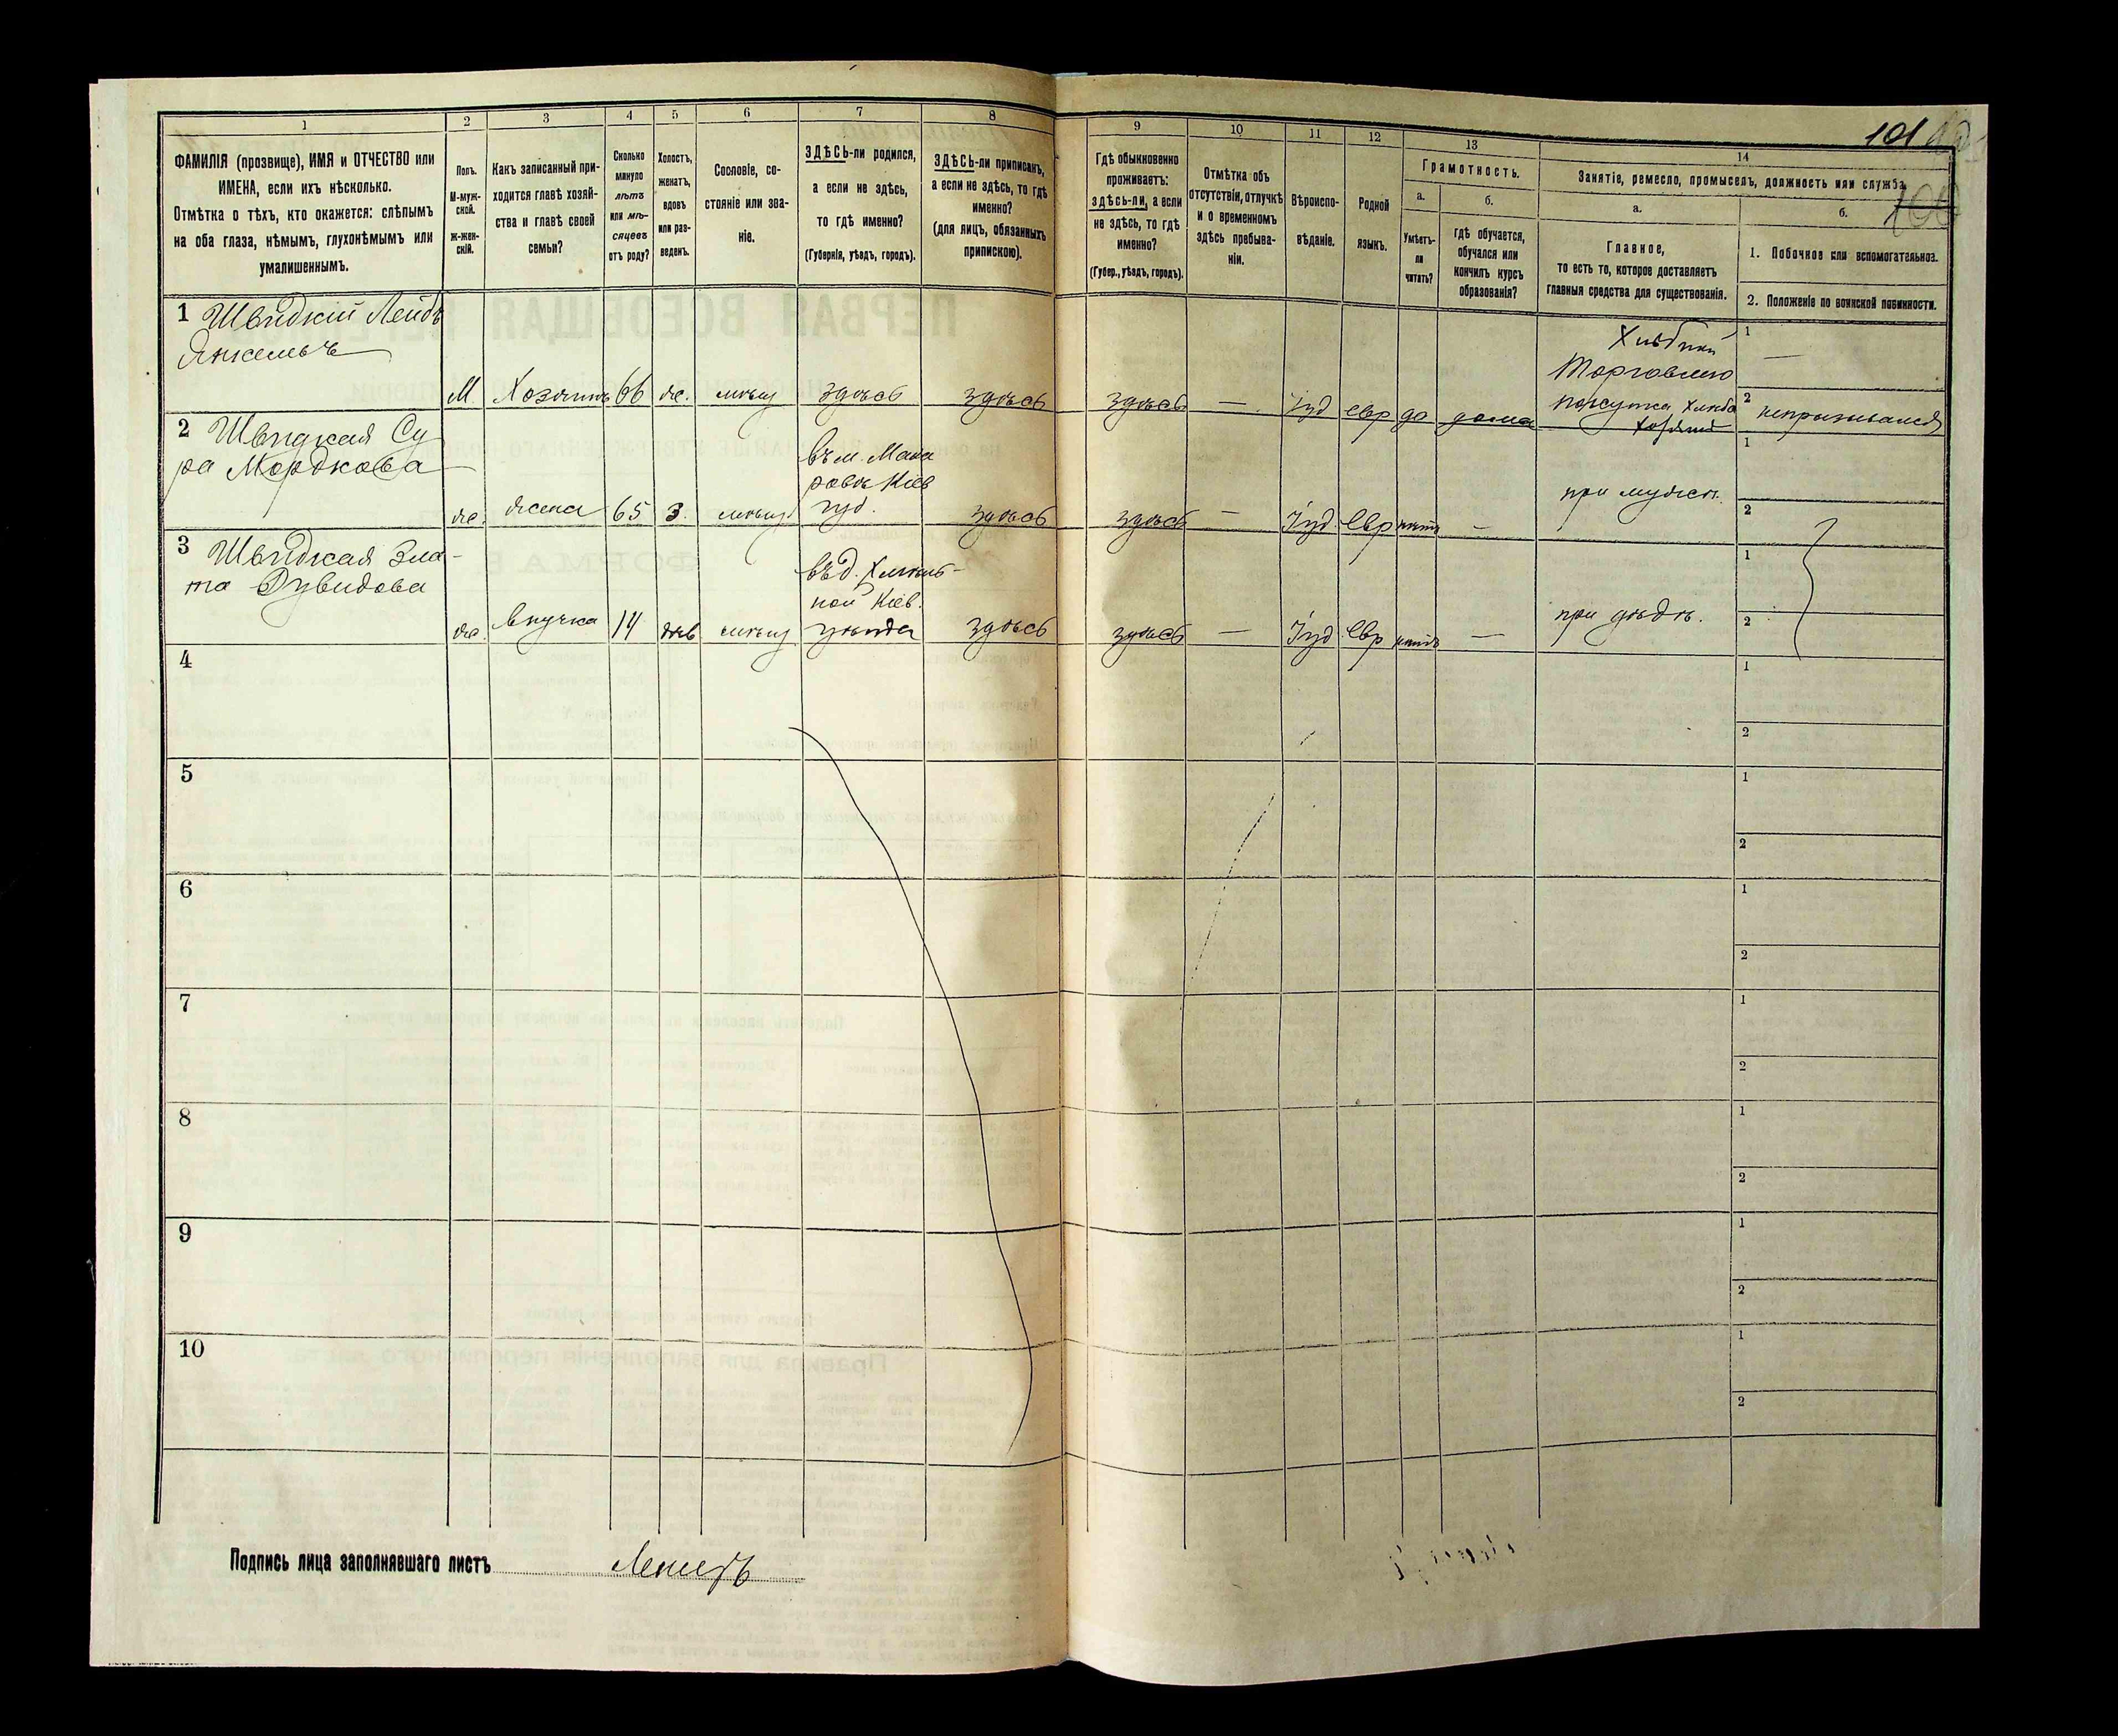 101
100
1
ФАМИЛІЯ (прозвище), ИМЯ и ОТЧЕСТВО или
ИМЕНА, если ихъ нѣсколько.
Отмѣтка о тѣхъ, кто окажется: слѣпымъ
на оба глаза, нѣмымъ, глухонѣмымъ или
умалишеннымъ.
2
Полъ.
М-муж-
ской.
Ж-жен-
скій.
3
Какъ записанный при-
ходится главѣ хозяй-
ства и главѣ своей
семьи?
4
Сколько
минуло
лѣтъ
или мѣ-
сяцевъ
отъ роду?
5
Холостъ,
женатъ,
вдовъ
или раз-
веденъ.
6
Сословіе, со-
стояніе или зва-
ніе.
7
ЗДѢСЬ-ли родился,
а если не здѣсь,
то гдѣ именно?
(Губернія, уѣздъ, городъ).
8
ЗДѢСЬ-ли приписанъ,
а если не здѣсь, то гдѣ
именно?
(для лицъ, обязанныхъ
припискою).
9
Гдѣ обыкновенно
проживаетъ:
здѣсь-ли, а если
не здѣсь, то гдѣ
именно?
(Губер., уѣздъ, городъ).
10
Отмѣтка объ
отсутствіи, отлучкѣ
и о временномъ
здѣсь пребыва-
ніи.
11
Вѣроиспо-
вѣданіе.
12
Родной
языкъ.
13
Грамотность.
а.
Умѣетъ-
ли
читать?
б.
Гдѣ обучается,
обучался или
кончилъ курсъ
образованія?
14
Занятіе, ремесло, промыселъ, должность или служба.
а.
Главное,
то есть то, которое доставляетъ
главныя средства для существованія.
б.
1. Побочное или вспомогательное.
2. Положеніе по воинской повинности.
1 Швидкій Лейбъ
Янкелевъ
М. Хозяинъ 66 ж. мѣщ здѣсь здѣсь здѣсь — Іуд евр да дома
Хлѣбной
Торговлею
покупка хлѣба
хозяинъ
1 —
2 непризывался
2 Швидкая Су
ра Мордкова
ж. жена 65 з. мѣщ
въ м. Мака
ровѣ Кіев
губ.
здѣсь здѣсь — Іуд. Евр нѣтъ —
при мужѣ
1
2
3 Швидкая Зла-
та Дувидова
ж. внучка 14 дѣв мѣщ
въ д. Хмѣль-
ной Кіев.
уѣзда
здѣсь здѣсь — Іуд Евр нѣтъ —
при дѣдѣ.
1
2
4
1
2
5
1
2
6
1
2
7
1
2
8
1
2
9
1
2
10
1
2
Подпись лица заполнявшаго листъ